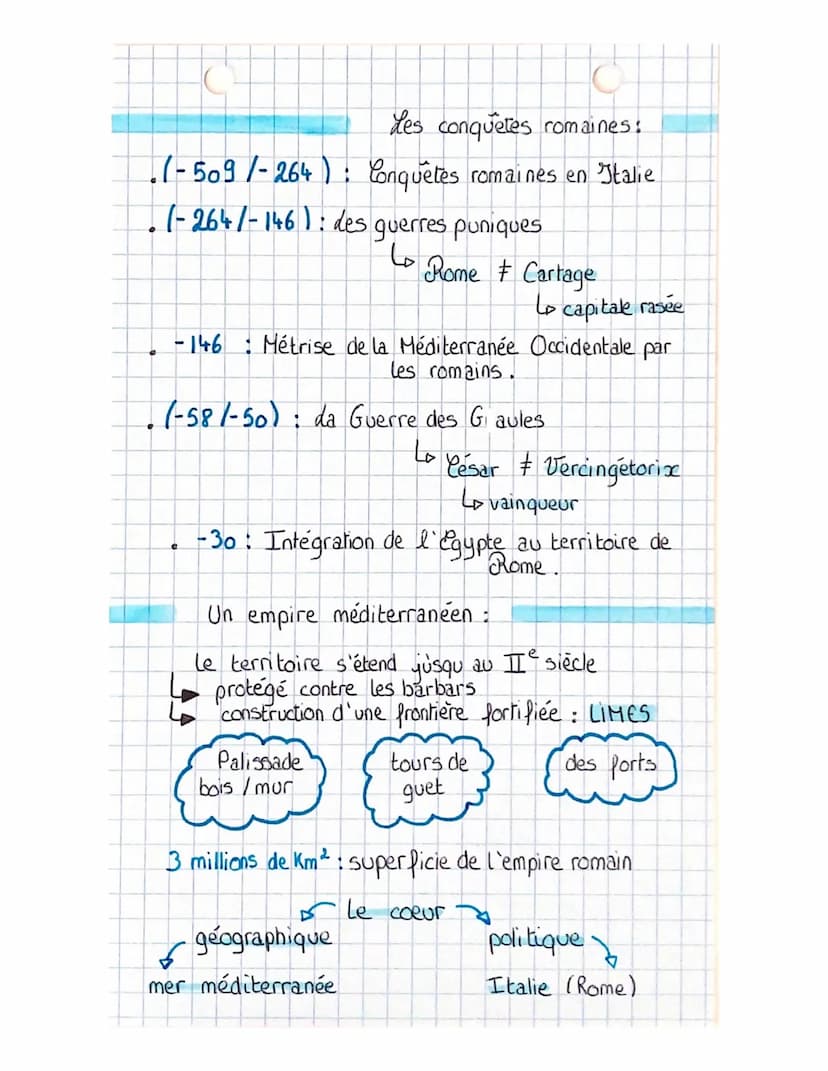 Les conquêtes romaines:
. (-509 /- 264 ) : Conquêtes romaines en Italie
. (-264/-146) : des guerres puniques
↳ Rome ≠ Cartage
↳ capitale rasée
. -146 : Métrise de la Méditerranée Occidentale par
les romains.
. (-58 /-50) : da Guerre des Gaules
↳ César ≠ Vercingétorix
↳ vainqueur
. -30 : Intégration de l'Egypte au territoire de
Rome.
Un empire méditerranéen :
Le territoire s'étend jusqu au IIe siècle
↳ protégé contre les barbars
↳ construction d'une frontière fortifiée : LIMES
Palissade
bois / mur
tours de
guet
des forts
3 millions de Km² : superficie de l'empire romain
Le coeur
géographique
politique
mer méditerranée
Italie (Rome)